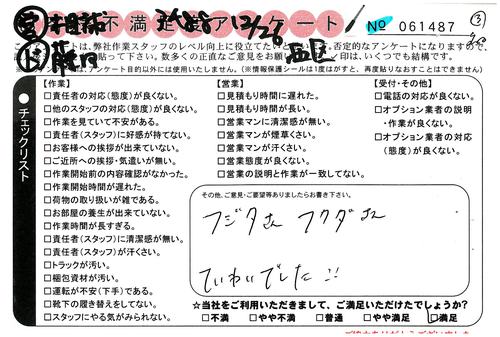 不満足アンケート 12/26 No 061487 ③
このアンケートは、弊社作業スタッフのレベル向上に役立てたい
否定的なアンケートになりますので、
貼って下さい。数多くの正直なご意見をお願い
印は、いくつでも結構です。
アンケート目的以外には使用いたしません。(※情報保護シールは1度はがすと、再度貼りなおすことはできません)
チェックリスト
【作業】
□責任者の対応(態度)が良くない。
□他のスタッフの対応(態度)が良くない。
□作業を見ていて不安がある。
□責任者(スタッフ)に好感が持てない。
□お客様への挨拶が出来ていない。
□ご近所への挨拶・気遣いが無い。
□作業開始前の内容確認がなかった。
□作業開始時間が遅れた。
□荷物の取り扱いが雑である。
□お部屋の養生が出来ていない。
□作業時間が長すぎる。
□責任者(スタッフ)に清潔感が無い。
□責任者(スタッフ)が汗くさい。
□トラックが汚い。
□梱包資材が汚い。
□運転が不安(下手)である。
□靴下の履き替えをしてない。
□スタッフにやる気がみられない。
【営業】
□見積もり時間に遅れた。
□見積もり時間が長い。
□営業マンに清潔感が無い。
□営業マンが煙草くさい。
□営業マンが汗くさい。
□営業態度が良くない。
□営業の説明と作業が一致してない。
【受付・その他】
□電話の対応が良くない。
□オプション業者の説明
・作業が良くない。
□オプション業者の対応
(態度)が良くない。
その他、ご意見・ご要望等ありましたらお書き下さい。
フジタさん フクダさん
ていねいでした!!
☆当社をご利用いただきまして、ご満足いただけたでしょうか?
□不満 □やや不満 □普通 □やや満足 □満足